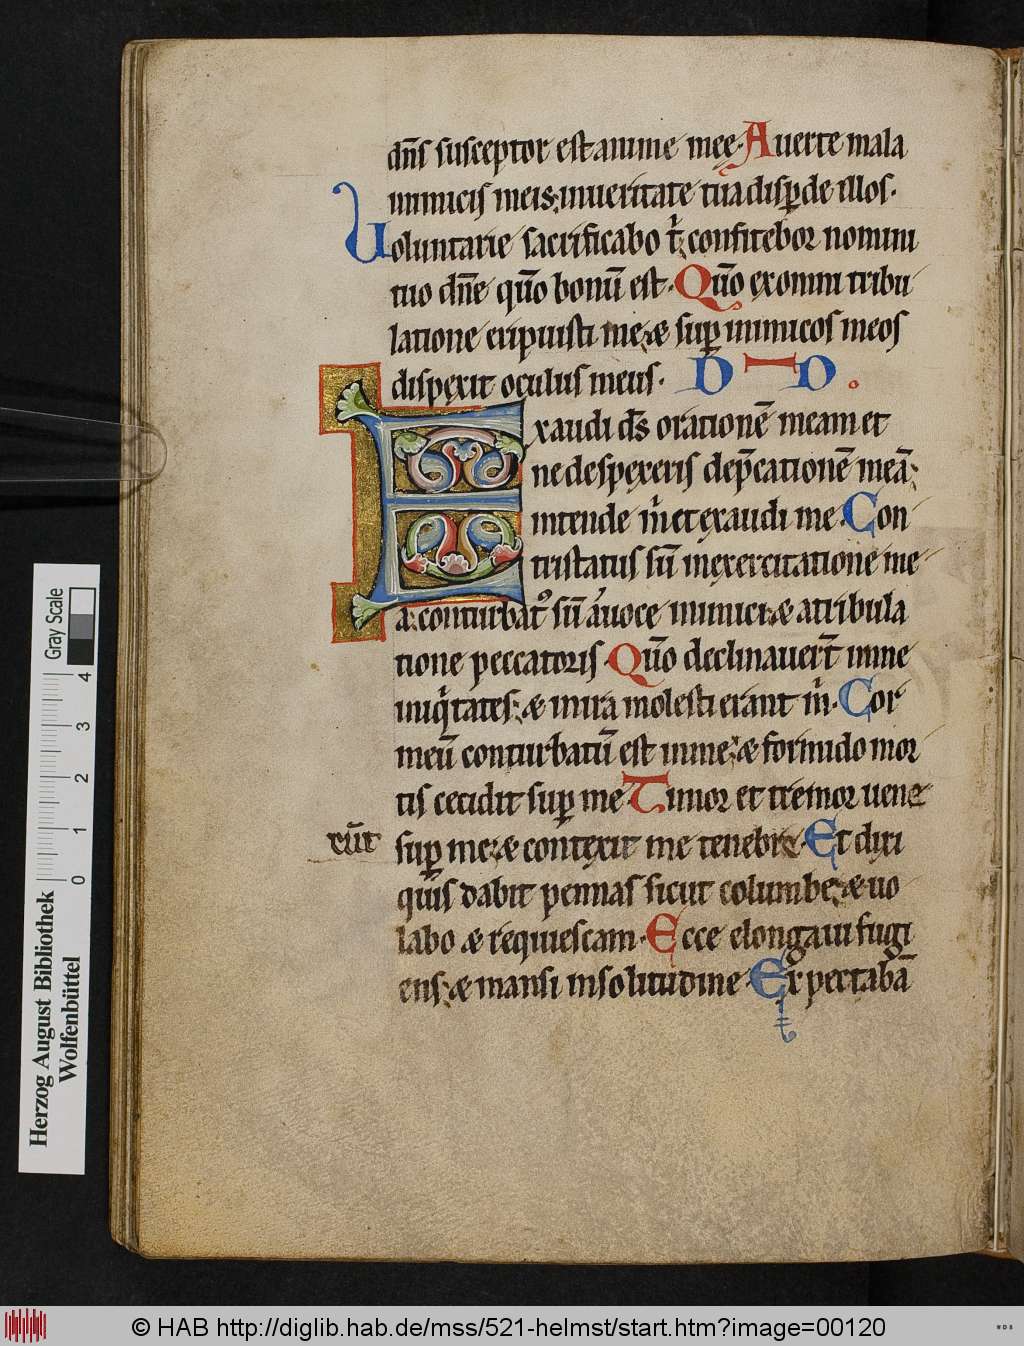 dn̄s susceptor est anime meę. Auerte mala
inimicis meis; inueritate tua disꝑde illos.
Uoluntarie sacrificabo t̄; confitebor nomini
tuo dn̄e qm̄o bonū est. Qm̄o exomni tribu
latione eripuisti me; & suꝑ inimicos meos
dispexit oculus meus. D D.
Exaudi ds̄ orationē meam et
ne despexeris dep̄cationē meā;
intende m̄ et exaudi me. Con
tristatus sū in exercitatione me
a; conturbatꝰ sū a uoce inimici; & a tribula
tione peccatoris. Qm̄o declinauer̄t inme
iniq̄tates; & inira molesti erant m̄. Cor
meū conturbatū est inme; & formido mor
tis cecidit suꝑ me. Timor et tremor uene
rūt suꝑ me; & contexit me tenebre. Et dixi
quis dabit pennas sicut columbe; & uo
labo & requiescam. Ecce elongaui fugi
ens; & mansi insolitudine. Expectabā
Gray Scale
0 1 2 3 4
Herzog August Bibliothek
Wolfenbüttel
© HAB http://diglib.hab.de/mss/521-helmst/start.htm?image=00120